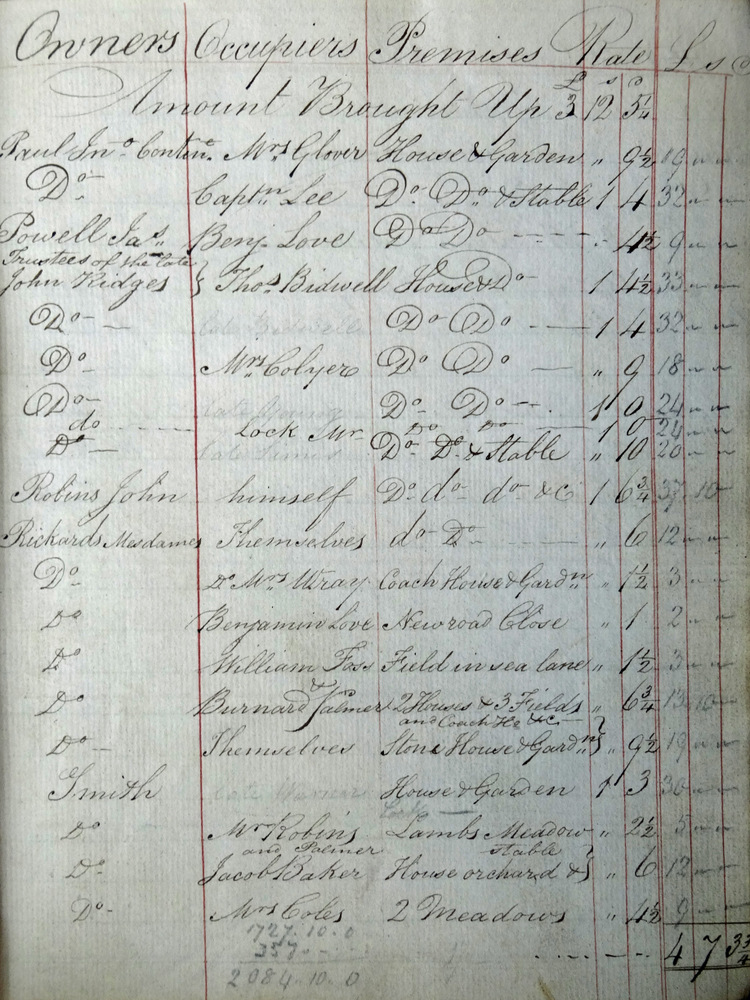 Owners Occupiers Premises Rate £ s d
£ s d
Amount Brought Up 3 12 5¼
Paul Jno. Contin. Mrs Glover House & Garden „ 9½ 19 „ „
Do Captn Lee Do Do & Stable 1 4 32 „ „
Powell Jas. Benj Love Do Do „ 4½ 9 „ „
Trustees of the late
John Ridges } Thos Bidwell House & Do 1 4½ 33 „ „
Do late Bidwell Do Do 1 4 32 „ „
Do Mrs Colyer Do Do „ 9 18 „ „
Do late Young Do Do 1 0 24 „ „
do Lock Mr Do Do 1 0 24 „ „
Do late Do Do & Stable „ 10 20 „ „
Robins John himself Do do do &C 1 6¾ 37 10
Rickards Mesdames Themselves do Do „ 6 12 „ „
Do Do Mrs Wray Coach House & Gardn „ 1½ 3 „ „
Do Benjamin Love New road Close „ 1 2 „ „
Do William Foss Field in sea lane „ 1½ 3 „ „
Do Burnard & Palmer 2 Houses & 3 Fields „ 6¾ 13 10 „
and Coach He &c
Do Themselves Stone House & Gardn } „ 9½ 19 „ „
Smith late House & Garden 1 3 30 „ „
Do Mr Robins Lambs Meadow „ 2½ 5 „ „
and Palmer stable
Do Jacob Baker House orchard & } „ 6 12 „ „
Do Mrs Coles 2 Meadows „ 4½ 9 „ „
1727.10.0
357
4 7 3¾
2084.10.0